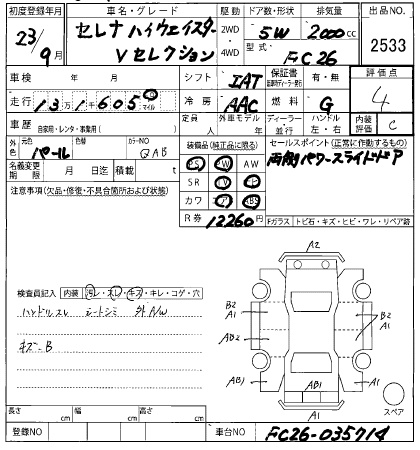 初度登録年月 車名・グレード 駆動 ドア数・形状 排気量 出品NO.
23/9月 セレナ ハイウェイスター Vセレクション 2WD・4WD 5W 2000cc 2533
型式 FC26
車検 年 月 シフト IAT 保証書 有・無 評価点 4
走行 13万1千605マイル 冷房 AAC 燃料 G
車歴 自家用・レンタ・事業用( ) 定員 人 外車モデル 年 ディーラー 並行 ハンドル 左・右 内装評価 C
外色 元色 パール 色替 カラーNO QAB 装備品(純正品に限る) セールスポイント(正常に作動するもの)
名義変更期限 月 日迄 積載 t PS PW AW 両側パワースライドドア
注意事項(欠品・修復・不具合箇所および状態) SR TV ナビ
カワ エア ABS
R券 12260円 Fガラス トビ石・キズ・ヒビ・ワレ・リペア跡
検査員記入 内装 汚レ・スレ・キズ・キレ・コゲ・穴
ハンドルスレ シートシミ 外A/W
キズーB
A2
B2
A1
B2
A1
AB2
A2
AB1
AB1
A1
A1
スペア
長さ cm 幅 cm 高さ cm
登録NO 車台NO FC26-035714